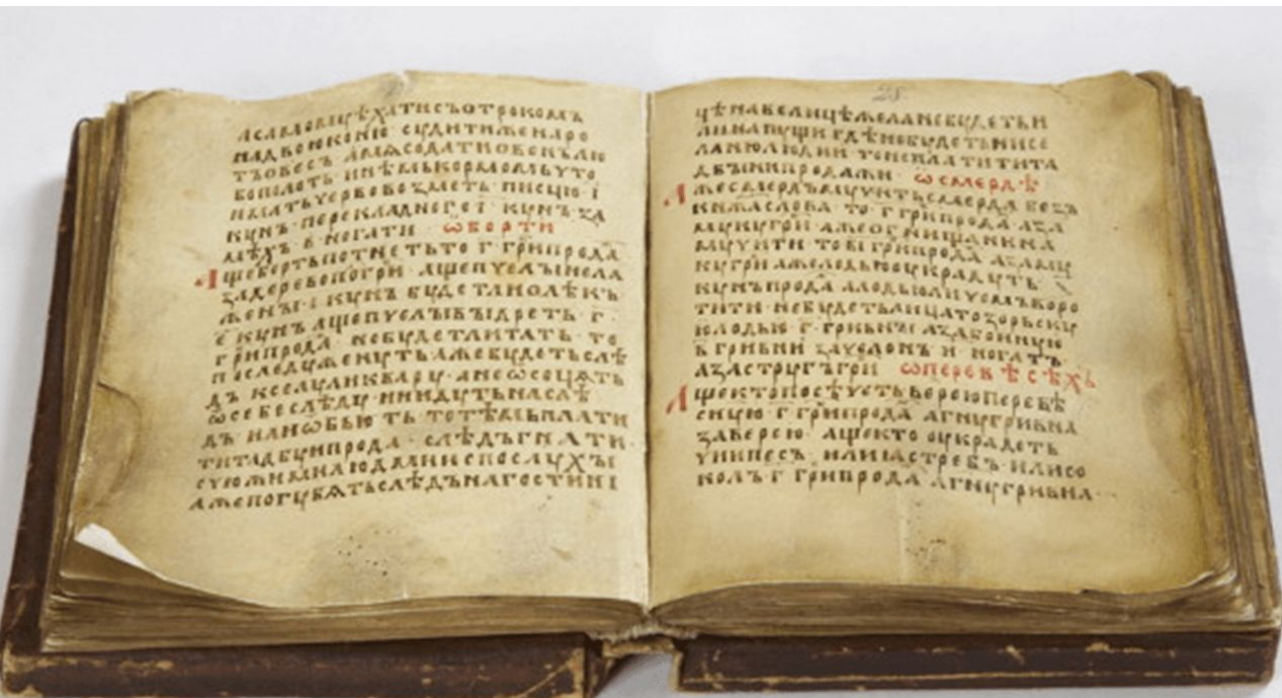 АСАМОМꙊѢХАТИСЪОТРОКОМЪ
НАДВОЮКОНЮ · СꙊДИТИЖЕНАРО
ТЪОВЕСЪ · АМЯСОДАТИОВЕНЪЛЮ
БОПОЛОТЬ · ИНѢМЬКОРМОМЬЧТО
ИМАТЬЧЕРЕВОВОЗМЕТЬ · ПИСЦЮ · І
КꙊНЪ · ПЕРЕКЛАДНОГО Е҃ · КꙊНЪ · ЗА
МѢХЪ · В҃ НОГАТИ · ѾБОРТИ
АЩЕБОРТЬПОТНЕТЬТО Г҃ ГРИ҃ПРОДА
ЗАДЕРЕВОПОГРИ҃ · АЩЕПЧЕЛЪІ
ЖЕНЪІ · І КꙊНЪ БꙊДЕТЛИОЛѢКЪ
Е҃ КꙊНЪ АЩЕПЧЕЛЪІВЪІДРЕТЬ · Г҃ ·
ГРИ҃ПРОДА҃ · НЕБꙊДЕТЛИТАТЬ · ТО
ПОСЛЕДꙊЖЕНꙊТЬАЖЕБꙊДЕТЬСЛѢ
ДЪ КСЕЛꙊИЛИКВАРꙊ · АНЕѾСОЦѦТЬ
ѾСЕБЕСЛѢДꙊ · НИИДꙊТЬНАСЛѢ
ДЪ ИЛИѾБЬЮ ТЬ · ТОТѢМЬПЛАТИ
ТИТАДБꙊИПРОДА · СЛѢДЪГНАТИ ·
СЧЮЖИМИЛЮДМИИСПОСЛꙊХЪІ
АЖЕПОГꙊБѦТЬСЛѢДЪНАГОСТИНІ
25
ЧѢНАВЕЛИЦѢЖЕЛАНЕБꙊДЕТЬИ
ЛИНАПꙊЩИГДѢНЕБꙊДЕТЬНИСЕ
ЛАНИЛЮДИИ ТОНЕПЛАТИТИТА
ДБЪІНИПРОДАЖИ · ѾСМЕРДѢ
АЖЕСМЕРДЪМꙊЧИТЬСМЕРДА БЕЗЪ
КНѦЖАСЛОВА · ТО · Г҃ ГРИ҃ПРОДА · АЗА
МꙊКꙊГРИ҃ АЖЕОГНИЩАНИНА
МꙊЧИТИ · ТО ВІ ГРИ҃ПРОДА · АЗАМꙊ
КꙊГРИ҃ АЖЕЛОДЬЮꙊКРАДꙊТЬ
КꙊНЪПРОДА · АЛОДЬЮЛИЧЕМЪВОРО
ТИТИ · НЕБꙊДЕТЬЛИЦАТОЗАМОРЬСКꙊ
ЮЛОДЬЮ · Г҃ · ГРИВНЪІ АЗАБОИНꙊЮ
В҃ ГРИВНИ ЗАЧЕЛОНЪ · И НОГАТЪ ·
АЗАСТРꙊГЪГРИ҃ ѾПЕРЕВѢСѢХЪ
АЩЕКТОПОСѢЧЕТЬВЕРВЮПЕРЕВѢ
СНꙊЮ Г҃ ГРИ҃ПРОДА · АГНꙊГРИВНА
ЗАВЕРВЮ · АЩЕКТО ꙊКРАДЕТЬ
ЧИИПЕСЪ · ИЛИЯСТРЕБЪ · ИЛИСО
КОЛЪ Г҃ ГРИ҃ПРОДА · АГНꙊГРИВНА ·